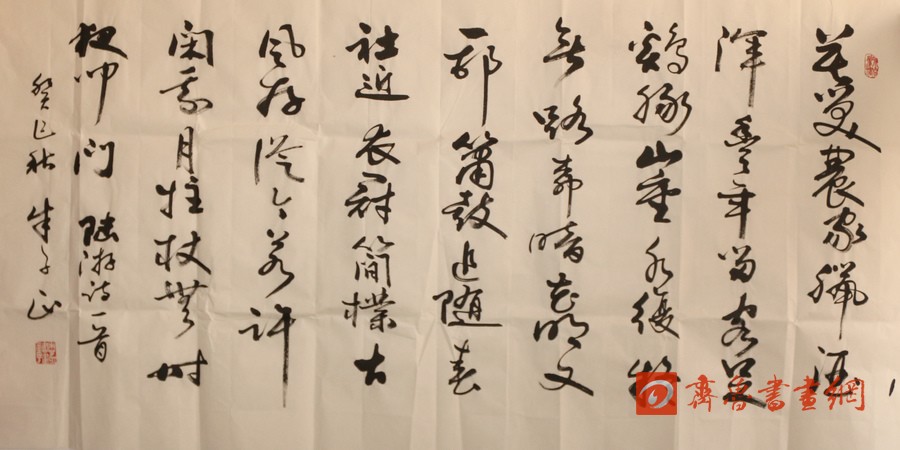 莫笑農家臘酒
渾豐年留客足
鷄豚山重水複疑
無路柳暗花明又
一邨簫鼓追随春
社近衣冠簡樸古
風存從今若許
閑乘月拄杖無时
夜叩门 陸游詩一首
癸巳秋
齊魯書畫網